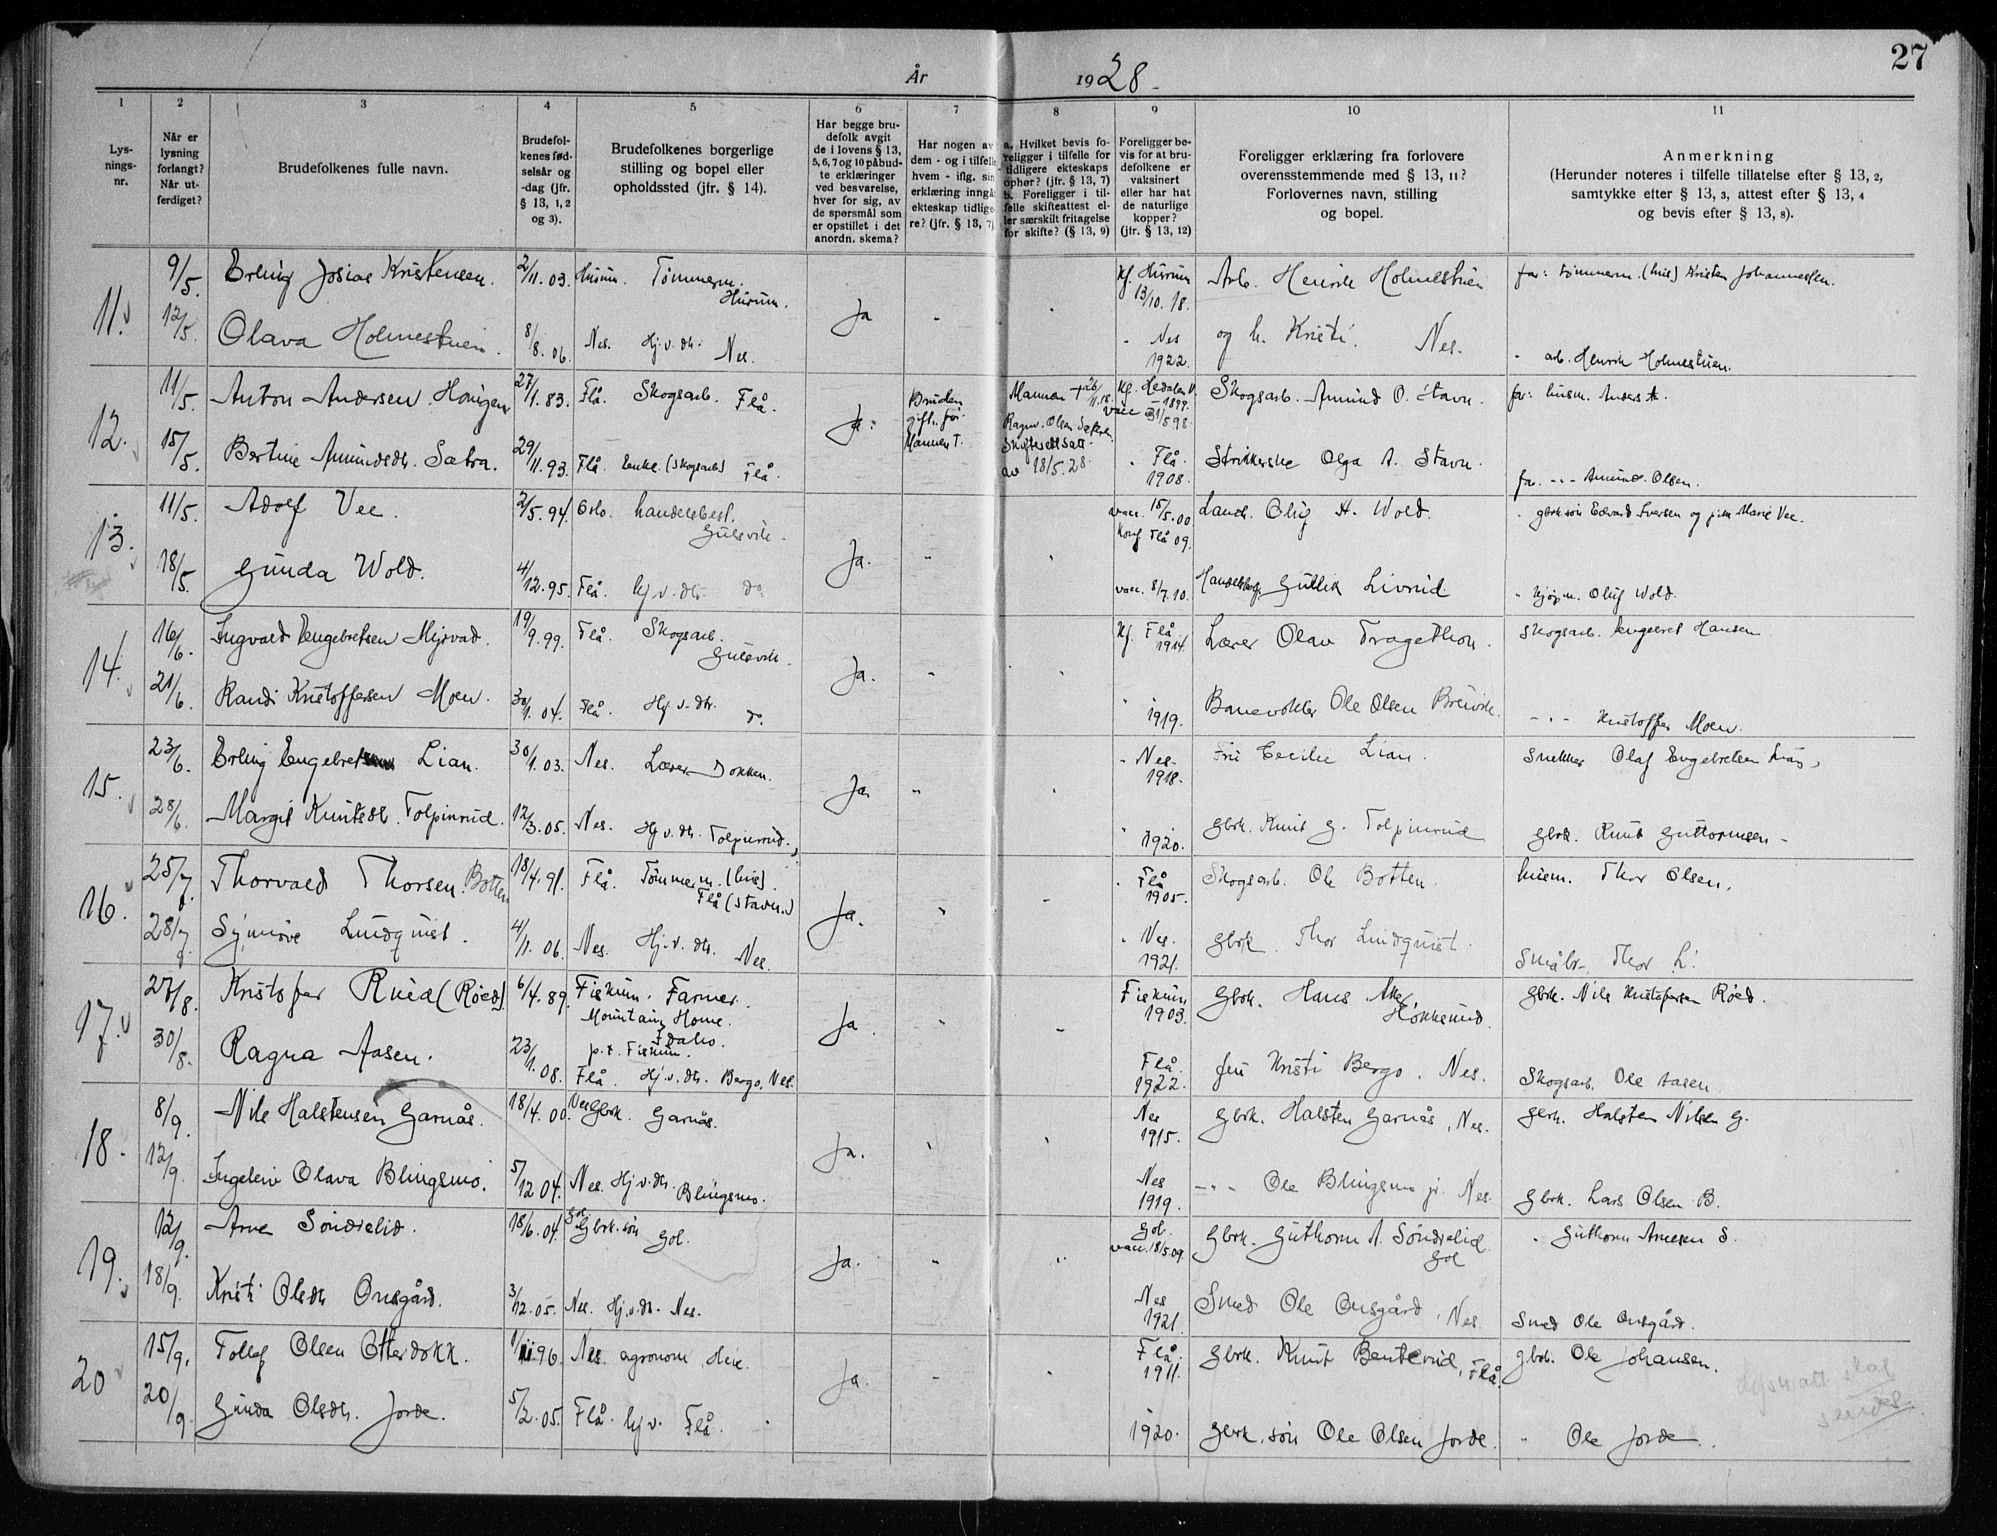 27
År 1928.
1 2 3 4 5 6 7 8 9 10 11
Lys-
nings-
nr.
Når er
lysning
forlangt?
Når ut-
ferdiget?
Brudefolkenes fulle navn.
Brudefol-
kenes fød-
selsår og
-dag (jfr.
§ 13, 1, 2
og 3).
Brudefolkenes borgerlige
stilling og bopel eller
opholdssted (jfr. § 14).
Har begge bru-
defolk avgit
de i lovens § 13,
5, 6, 7 og 10 påbud-
te erklæringer
ved besvarelse,
hver for sig, av
de spørsmål som
er opstillet i det
anordn. skema?
Har nogen av
dem - og i tilfelle
hvem - iflg. sin
erklæring inngå
ekteskap tidlige-
re? (jfr. § 13, 7)
a. Hvilket bevis fo-
religger i tilfelle for
tidligere ekteskaps
ophør? (jfr. § 13, 7)
b. Foreligger i til-
felle skifteattest el-
ler særskilt fritagelse
for skifte? (§ 13, 9)
Foreligger be-
vis for at bru-
defolkene er
vaksinert
eller har hat
de naturlige
kopper?
(jfr. § 13, 12)
Foreligger erklæring fra forlovere
overensstemmende med § 13, 11?
Forlovernes navn, stilling
og bopel.
Anmerkning
(Herunder noteres i tilfelle tillatelse efter § 13, 2,
samtykke efter § 13, 3, attest efter § 13, 4
og bevis efter § 13, 8).
11. 9/5. Erling Josias Kristensen. 2/11.03. Hurum. Tømmerm. Hurum. Ja - Kf. Hurum 13/10.18. Arb. Henrik Holmestuen far: tømmerm. Kristen Johannessen.
12/5. Olava Holmestuen. 8/8.06. Nes. Hj.v.dtr. Nes. - Nes 1922. og h. Kristi. Nes. - arb. Henrik Holmestuen.
12. 11/5. Anton Andersen 27/1.83. Flå. Skogsarb. Flå. Ja: Bruden gift. før. Mannen †. Mannen † 26/11.18. Kf. Hedalen V. 1899. vacc. 31/5 98. Skogsarb. Amund O. Stavn. far: husm. Anders A.
15/5. Bertine Amundsdtr. Sætra. 29/11.93. Flå. Enke (skogsarb) Flå. av 18/5.28. - Flå. 1908. Strikkerske Olga A. Stavn. far. -"- Amund Olsen.
13. 11/5. Adolf Vee. 2/5.94. Oslo. handelsbest. Gulsvik. Ja. " vacc. 18/5.00 Konf Flå 09. Landh. Oluf H. Wold. - gbrk.søn Edvard Iversen og pike Marie Vee.
18/5. Gunda Wold. 4/12.95. Flå. hj.v.dtr. do. vacc. 8/7.10. Handelsbest. Gullik Livrud. - kjøpm. Oluf Wold.
14. 16/6. Ingvald Engebretsen Myrvad. 19/9.99. Flå. Skogsarb. Gulsvik. Ja. " Kf. Flå 1914. Lærer Olav Tragethon. Skogsarb. Engebret Hansen
21/6. Randi Kristoffersen Moen. 30/1.04. Flå. Hj.v.dtr. do. " 1919. Banevokter Ole Olsen Breivik. -"- Kristoffer Moen.
15. 23/6. Erling Engebretsen Lian. 30/1.03. Nes. Lærer Dokken. Ja. " - Nes. 1918. Fru Cecilie Lian. Snekker Olaf Engebretsen
28/6. Margit Knutsdtr. Tolpinrud. 12/3.05. Nes. Hj.v.dtr. Tolpinrud. " 1920. Gbrk. Knut G. Tolpinrud gbrk. Knut Guttormsen -
16. 25/7. Thorvald Thorsen Botten 18/4.91. Flå. Tømmerm. Flå (Stavn.) Ja. " - Flå 1905. Skogsarb. Ole Botten. husm. Thor Olsen.
28/7. Synnøve Lindquist. 4/1.06. Nes. Hj.v.dtr. Nes. - Nes. 1921. gbrk. Thor Lindquist. Småbr. Thor L.
17. 27/8. Kristofer Rued (Røed). 6/4.89. Fiskum. Farmer. Mountain Home. Idaho. p.t. Fiskum. Ja. " Fiskum 1903. Gbrk. Hans Hokksund. Gbrk. Nils Kristofersen Røed.
30/8. Ragna Aasen. 23/1.08. Flå. Hj.v.dtr. Bergo, Nes. Flå. 1922. fru Kristi Bergo. Nes. Skogsarb. Ole Aasen.
18. 8/9. Nils Halstensen Garnås. 18/4.00. Nes Gbrk. Garnås. Ja. " Nes 1915. gbrk. Halsten Garnås, Nes. gbrk. Halsten Nilsen G.
12/9. Ingeleiv Olava Blingsmo. 5/12 04. Nes. Hj.v.dtr. Blingsmo. Nes 1919. -"- Ole Blingsmo jr. Nes. Gbrk. Lars Olsen B.
19. 12/9. Arne Søndrelid. 18/6.04. Gol. Gbrk.søn Gol. Ja. " Gol. vacc. 18/5.09. Gbrk. Guthorm A. Søndrelid. Gol - Guthorm Arnesen S.
18/9. Kristi Olsdtr Onsgård. 3/12.05. Nes. Hj.v.dtr. Nes. Nes 1921. Smed Ole Onsgård, Nes. Smed Ole Onsgård.
20 15/9. Tollef Olsen Otterdokk. 1/11 96. Nes. agronom Ja. - Flå. 1911. Gbrk. Knut Bentevud, Flå. gbrk. Ole Johansen.
20/9. Gunda Olsdtr. Jorde. 5/2.05. Flå. hj.v. Flå. " 1920. Gbrk.søn Ole Olsen Jorde. " Ole Jorde.
Lysn.att. skal
sendes.